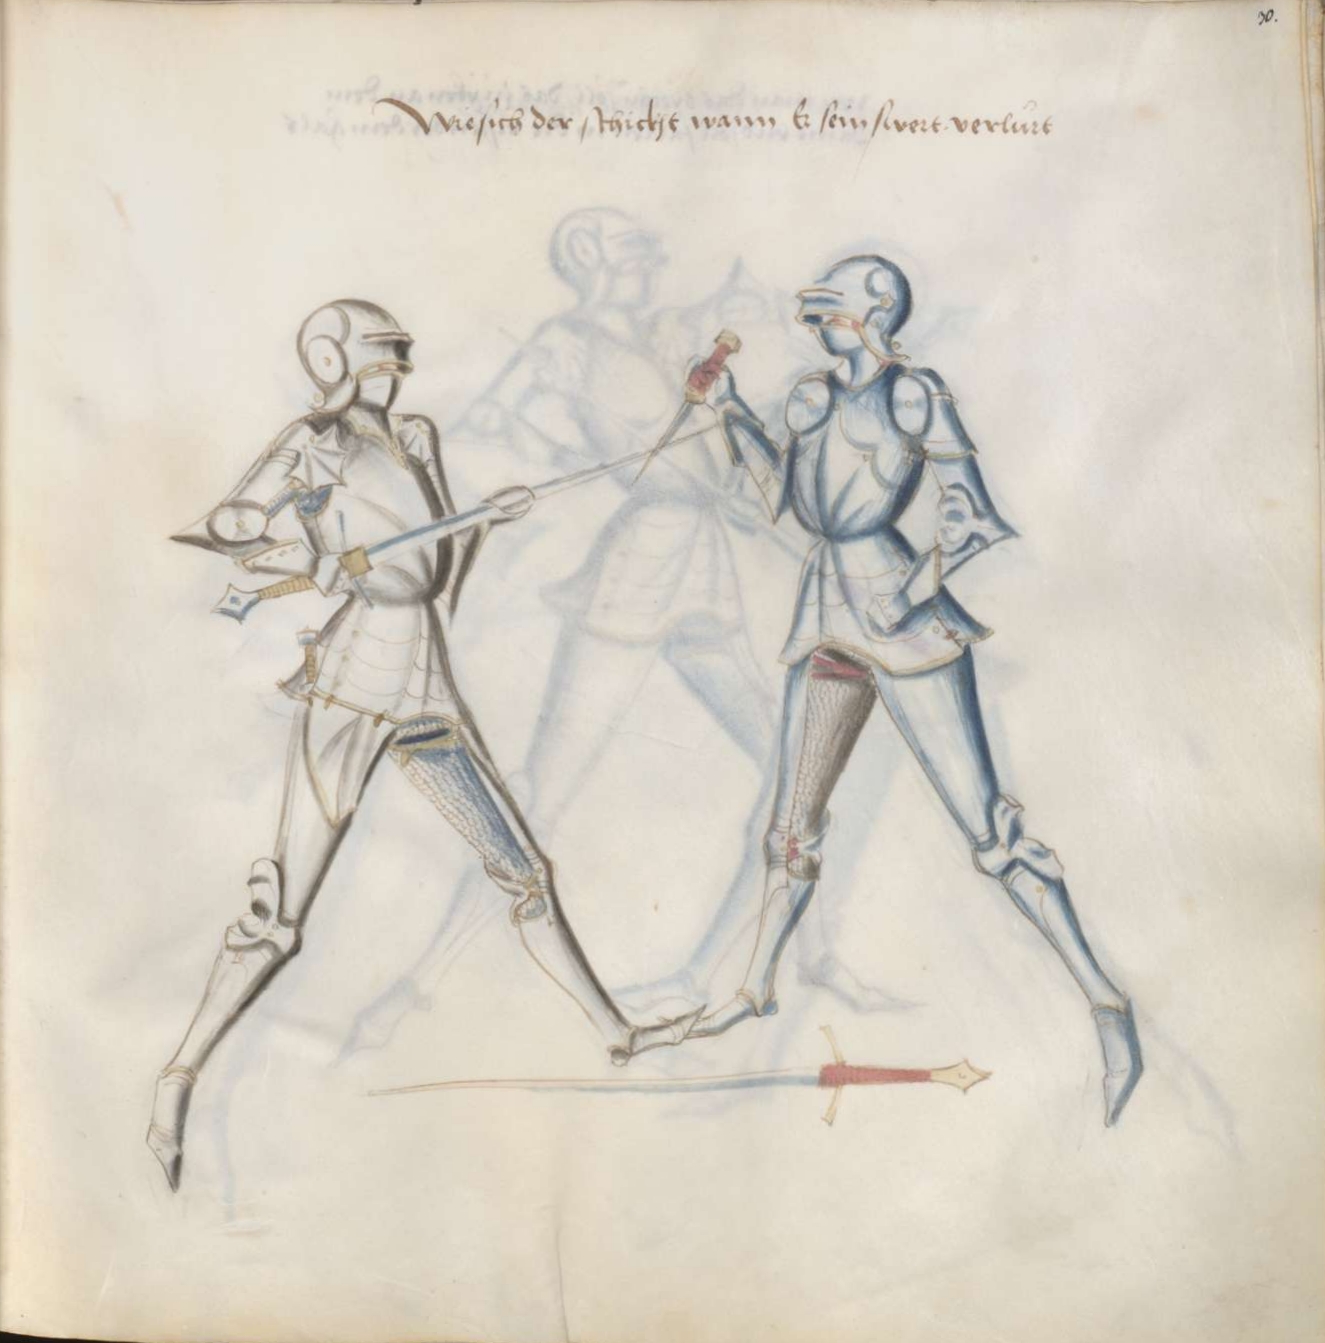 30.
Wie sich der schickt wann Er sein swert verlurt